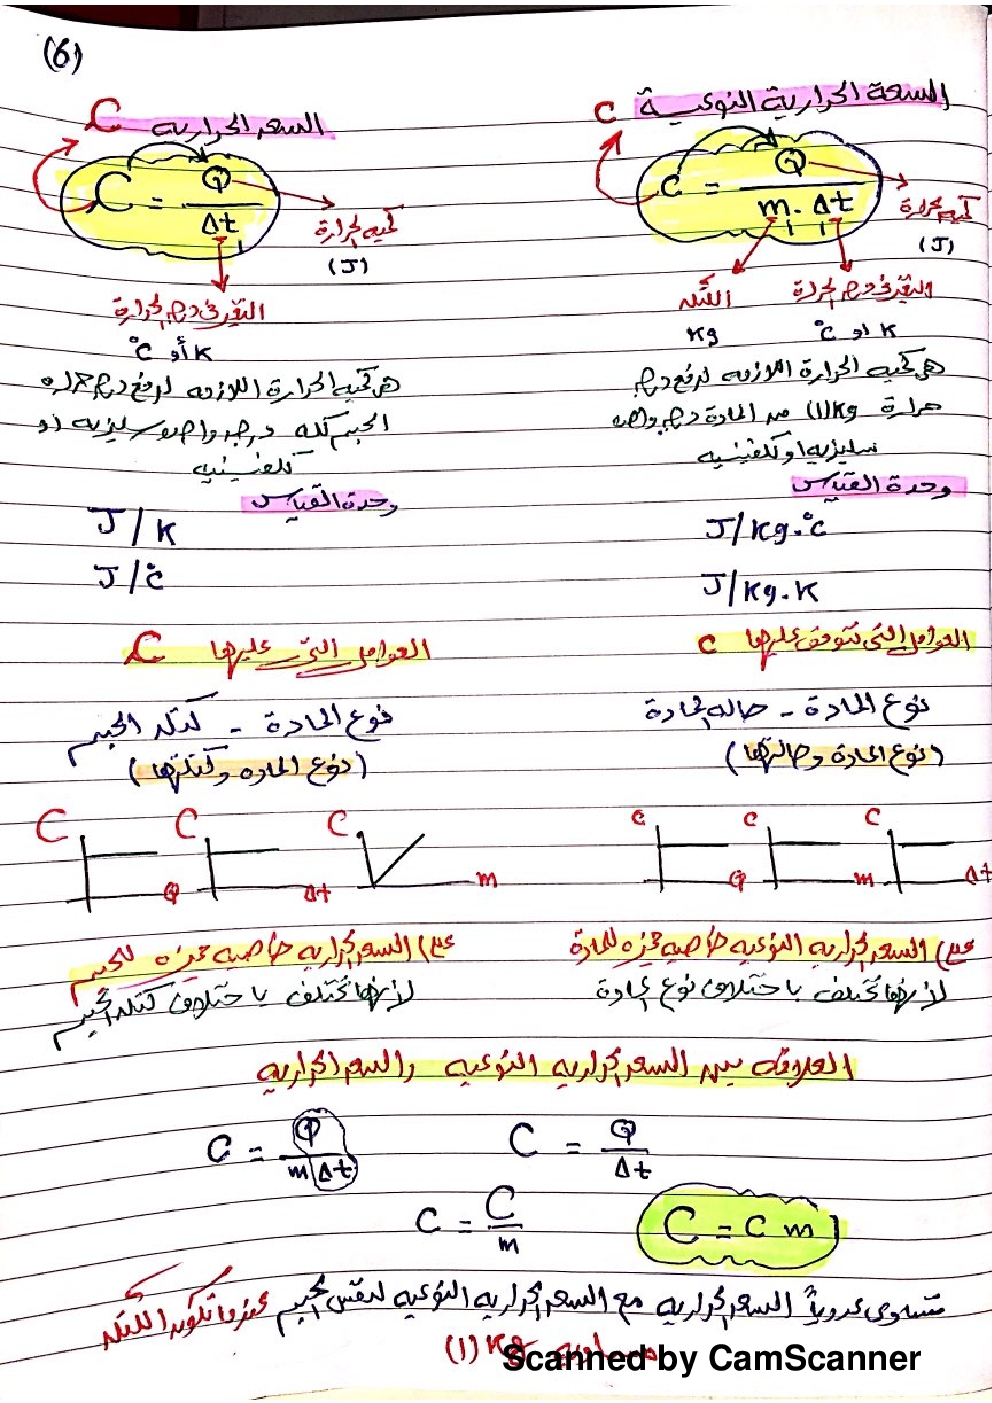 (6)
السعة الحرارية النوعية c
c = Q / m . Δt
كمية الحرارة
(J)
التغير فى درجة الحرارة
K او °c
الكتلة
Kg
هى كمية الحرارة اللازمه لرفع درجة
حرارة (1)Kg من المادة درجه واحده
سليزيه او كلفينيه
وحدة القياس
J/Kg.°c
J/Kg.K
العوامل التى تتوقف عليها c
نوع المادة - حاله المادة
(نوع المادة وحالتها)
c Q
c m
c Δt
علل) السعه الحراريه النوعيه خاصيه مميزه للمادة
لأنها تختلف باختلاف نوع المادة
السعه الحراريه C
C = Q / Δt
كميه الحرارة
(J)
التغير فى درجه الحرارة
K أو °c
هى كميه الحرارة اللازمه لرفع درجه حراره
الجسم كله درجه واحده سليزيه او
كلفينيه
وحدة القياس
J/K
J/°c
العوامل التى عليها C
نوع المادة - كتله الجسم
(نوع الماده وكتلتها)
C Q
C Δt
C m
علل) السعه الحراريه خاصيه مميزه للجسم
لأنها تختلف باختلاف كتله الجسم
العلاقه بين السعه الحراريه النوعيه والسعه الحراريه
c = Q / m Δt
C = Q / Δt
c = C / m
C = c m
تتساوى عددياً السعه الحراريه مع السعه الحراريه النوعيه لنفس الجسم عندما تكون الكتله
مساويه (1) Kg
Scanned by CamScanner